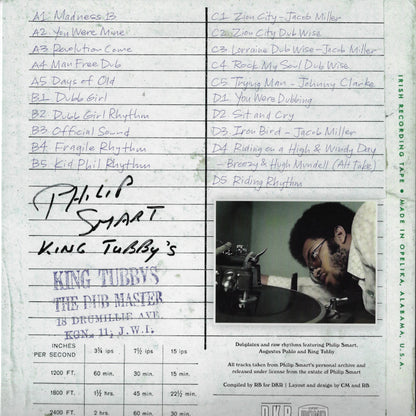 A1 Madness 13
A2 You Were Mine
A3 Revolution Come
A4 Man Free Dub
A5 Days of Old
B1 Dubb Girl
B2 Dubb Girl Rhythm
B3 Official Sound
B4 Fragile Rhythm
B5 Kid Phil Rhythm
C1 Zion City - Jacob Miller
C2 Zion City Dub Wise
C3 Lorraine Dub Wise - Jacob Miller
C4 Rock My Soul Dub Wise
C5 Trying Man - Johnny Clarke
D1 You Were Dubbing
D2 Sit and Cry
D3 Iron Bird - Jacob Miller
D4 Riding on a High & Windy Day
- Breezy & Hugh Mundell (Alt Take)
D5 Riding Rhythm
IRISH RECORDING TAPE • MADE IN OPELIKA, ALABAMA, U.S.A.
PHILIP
SMART
KING TUBBY'S
KING TUBBYS
THE DUB MASTER
18 DRUMILLIE AVE
KGN. 11, J.W.I.
INCHES PER SECOND 3¾ ips 7½ ips 15 ips
1200 FT. 60 min. 30 min. 15 min.
1800 FT. 1½ hrs. 45 min. 22½ min.
2400 FT. 2 hrs. 60 min. 30 min.
Dubplates and raw rhythms featuring Philip Smart,
Augustus Pablo and King Tubby
All tracks taken from Philip Smart's personal archive and
released under license from the estate of Philip Smart
Compiled by RB for DKR | Layout and design by CM and RB
DKR